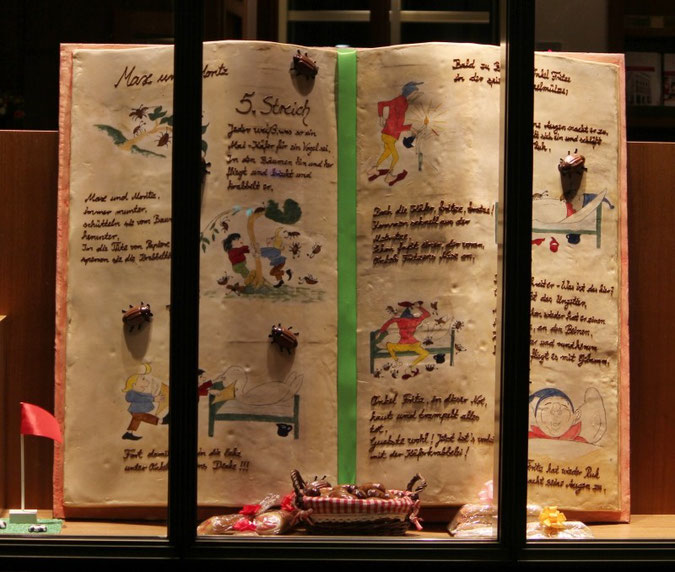 Max und Moritz
5. Streich
Jeder weiß, was so ein
Mai-Käfer für ein Vogel sei.
In den Bäumen hin und her
fliegt und kriecht und
krabbelt er.
Max und Moritz,
immer munter,
schütteln sie vom Baum
herunter,
In die Tüte von Papiere
sperren sie die
Fort damit in die Ecke
unter Onkel Decke !!!
Bald zu B Onkel Fritze
in der spi elmütze;
Augen macht er zu,
sich ein und schläft
Doch die Käfer, kritze, kratze!
Kommen schnell aus der
Matratze.
Schon faßt einer, der voran,
Onkel Fritzens Nase an.
schreit er - Was ist das hier?
das Ungetier.
wieder hat er einen
, an den Beinen,
und rundherum
fliegt es mit Gebrumm,
Onkel Fritz, in dieser Not,
haut und trampelt alles
tot.
Guckste wohl! Jetzt ist's
mit der Käferkrabbelei!
Fritz hat wieder Ruh
macht seine Augen zu.